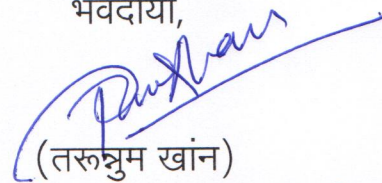 भवदीया,
(तरून्नुम खांन)